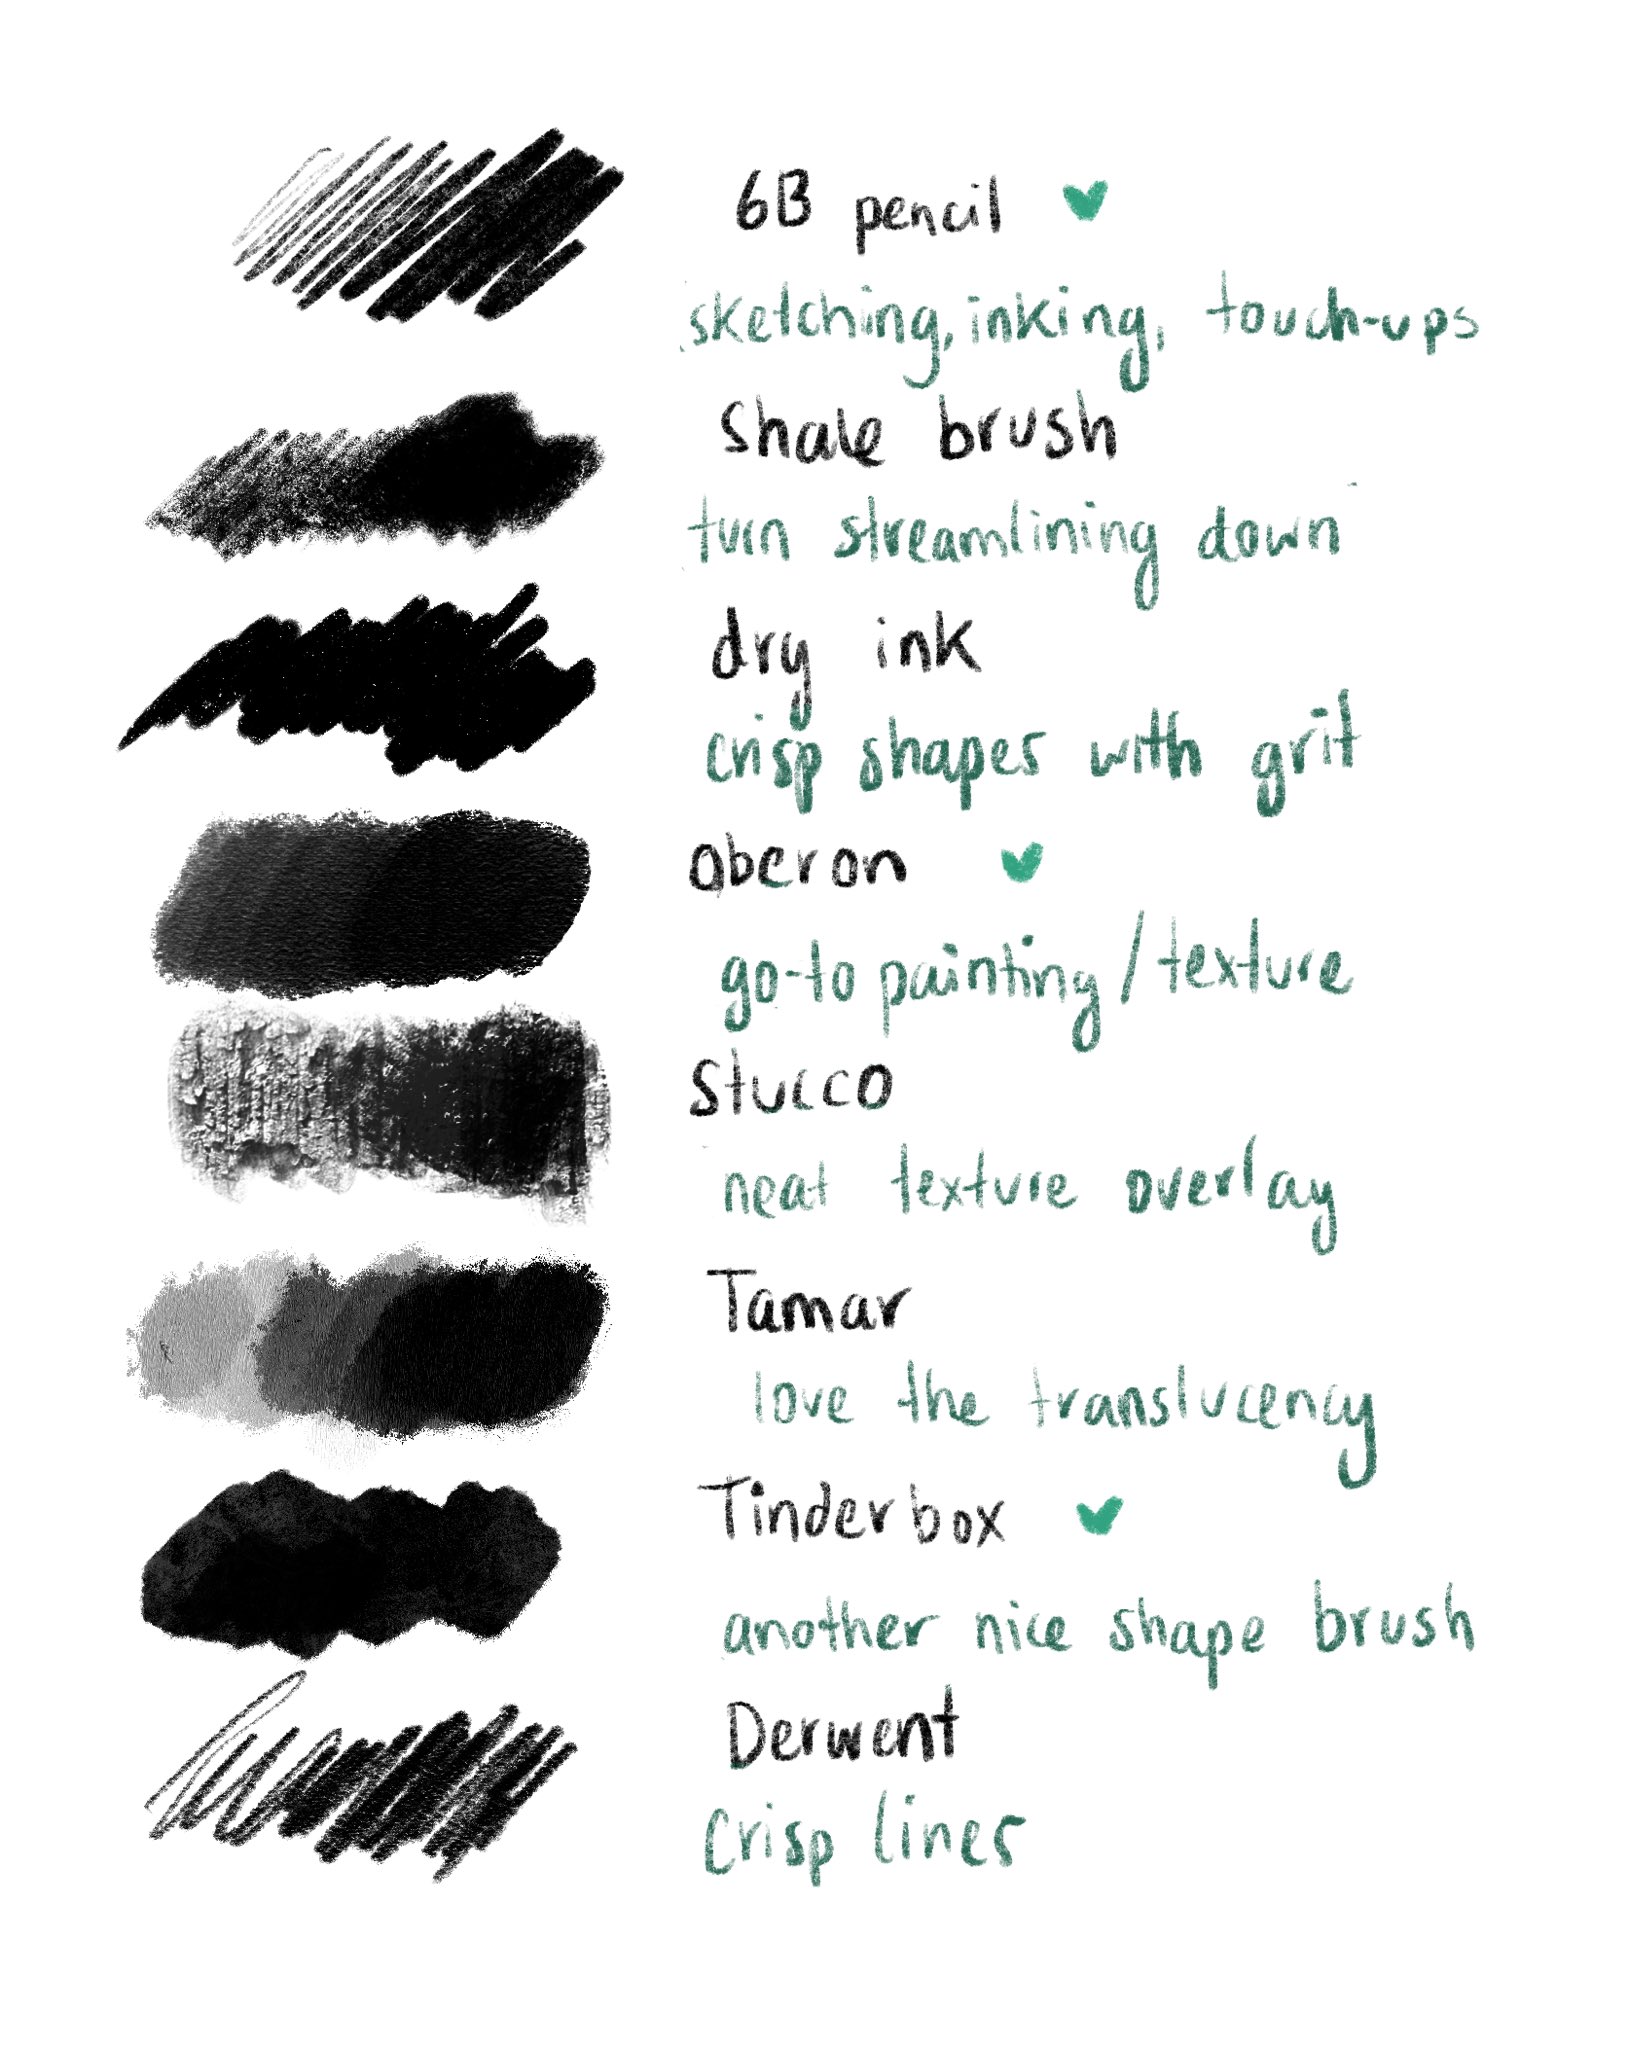 6B pencil
sketching, inking, touch-ups
Shale brush
turn streamlining down
dry ink
crisp shapes with grit
Oberon
go-to painting/texture
Stucco
neat texture overlay
Tamar
love the translucency
Tinderbox
another nice shape brush
Derwent
crisp lines